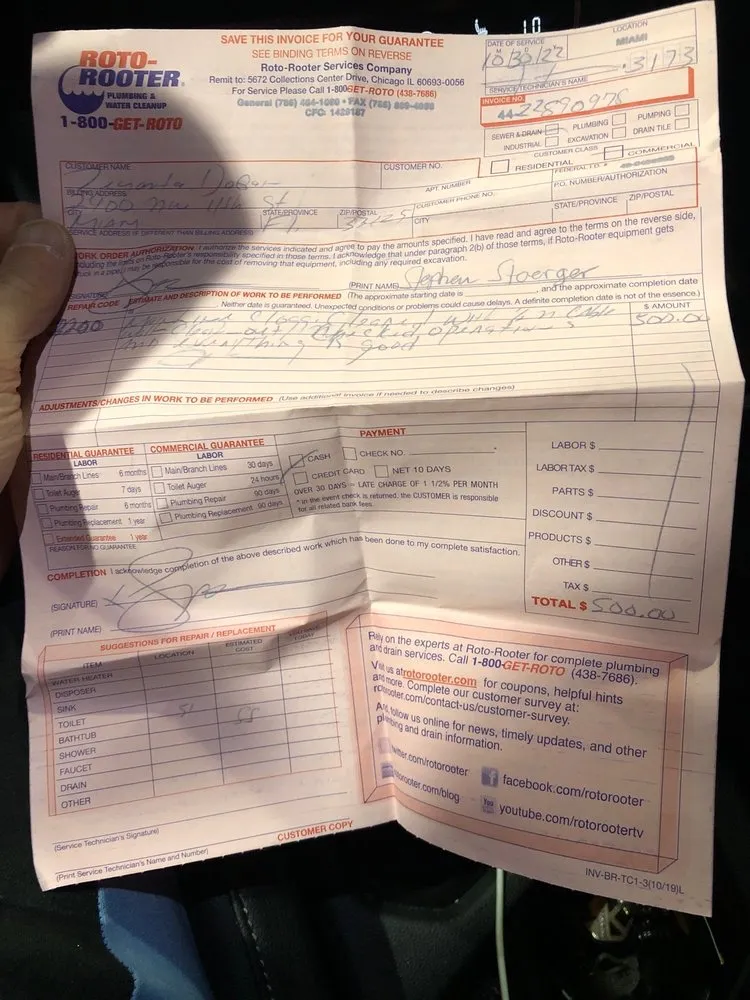 1.0
ROTO-ROOTER®
PLUMBING &
WATER CLEANUP
1-800-GET-ROTO
SAVE THIS INVOICE FOR YOUR GUARANTEE
SEE BINDING TERMS ON REVERSE
Roto-Rooter Services Company
Remit to: 5672 Collections Center Drive, Chicago IL 60693-0056
For Service Please Call 1-800GET-ROTO (438-7686)
General (786) 464-1080 • FAX
CFC
DATE OF SERVICE
LOCATION
MIAMI
10 30 22
3173
SERVICE TECHNICIAN'S NAME
INVOICE NO.
44-22890978
SEWER & DRAIN PLUMBING PUMPING
INDUSTRIAL EXCAVATION DRAIN TILE
CUSTOMER CLASS
RESIDENTIAL COMMERCIAL
CUSTOMER NAME
CUSTOMER NO.
FEDERAL I.D. #
BILLING ADDRESS
APT. NUMBER
P.O. NUMBER/AUTHORIZATION
CITY STATE/PROVINCE ZIP/POSTAL
CUSTOMER PHONE NO.
Miami Fl 33125
CITY STATE/PROVINCE ZIP/POSTAL
SERVICE ADDRESS IF DIFFERENT THAN BILLING ADDRESS
WORK ORDER AUTHORIZATION: I authorize the services indicated and agree to pay the amounts specified. I have read and agree to the terms on the reverse side,
including the limits on Roto-Rooter's responsibility specified in those terms. I acknowledge that under paragraph 2(b) of those terms, if Roto-Rooter equipment gets
stuck in a pipe, I may be responsible for the cost of removing that equipment, including any required excavation.
(SIGNATURE)
(PRINT NAME) Stephen Stoerger
REPAIR CODE ESTIMATE AND DESCRIPTION OF WORK TO BE PERFORMED (The approximate starting date is , and the approximate completion date
Neither date is guaranteed. Unexpected conditions or problems could cause delays. A definite completion date is not of the essence.)
$ AMOUNT
500.00
everything is good
ADJUSTMENTS/CHANGES IN WORK TO BE PERFORMED (Use additional invoice if needed to describe changes)
RESIDENTIAL GUARANTEE
LABOR
Main/Branch Lines 6 months
Toilet Auger 7 days
Plumbing Repair 6 months
Plumbing Replacement 1 year
Extended Guarantee 1 year
REASON FOR NO GUARANTEE
COMMERCIAL GUARANTEE
LABOR
Main/Branch Lines 30 days
Toilet Auger 24 hours
Plumbing Repair 90 days
Plumbing Replacement 90 days
PAYMENT
CASH CHECK NO.
CREDIT CARD NET 10 DAYS
OVER 30 DAYS = LATE CHARGE OF 1 1/2% PER MONTH
* in the event check is returned, the CUSTOMER is responsible
for all related bank fees.
LABOR $
LABOR TAX $
PARTS $
DISCOUNT $
PRODUCTS $
OTHER $
TAX $
TOTAL $ 500.00
COMPLETION I acknowledge completion of the above described work which has been done to my complete satisfaction.
(SIGNATURE)
(PRINT NAME)
SUGGESTIONS FOR REPAIR / REPLACEMENT
ITEM LOCATION ESTIMATED COST
WATER HEATER
DISPOSER
SINK
TOILET
BATHTUB
SHOWER
FAUCET
DRAIN
OTHER
Rely on the experts at Roto-Rooter for complete plumbing
and drain services. Call 1-800-GET-ROTO (438-7686).
Visit us at rotorooter.com for coupons, helpful hints
and more. Complete our customer survey at:
rotorooter.com/contact-us/customer-survey.
And, follow us online for news, timely updates, and other
plumbing and drain information.
twitter.com/rotorooter
facebook.com/rotorooter
rotorooter.com/blog
youtube.com/rotorootertv
(Service Technician's Signature)
CUSTOMER COPY
(Print Service Technician's Name and Number)
INV-BR-TC1-3(10/19)L